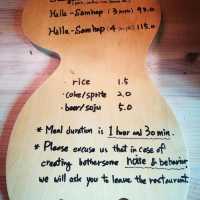 Halla-Samhap (3 min) 98.0
Halla-Samhap (4 min) 115.0
· rice 1.5
· coke/sprite 2.0
· beer/soju 5.0
* Meal duration is 1 hour and 30 min.
* Please excuse us that in case of
creating bothersome noise & behavior
we will ask you to leave the restaurant.